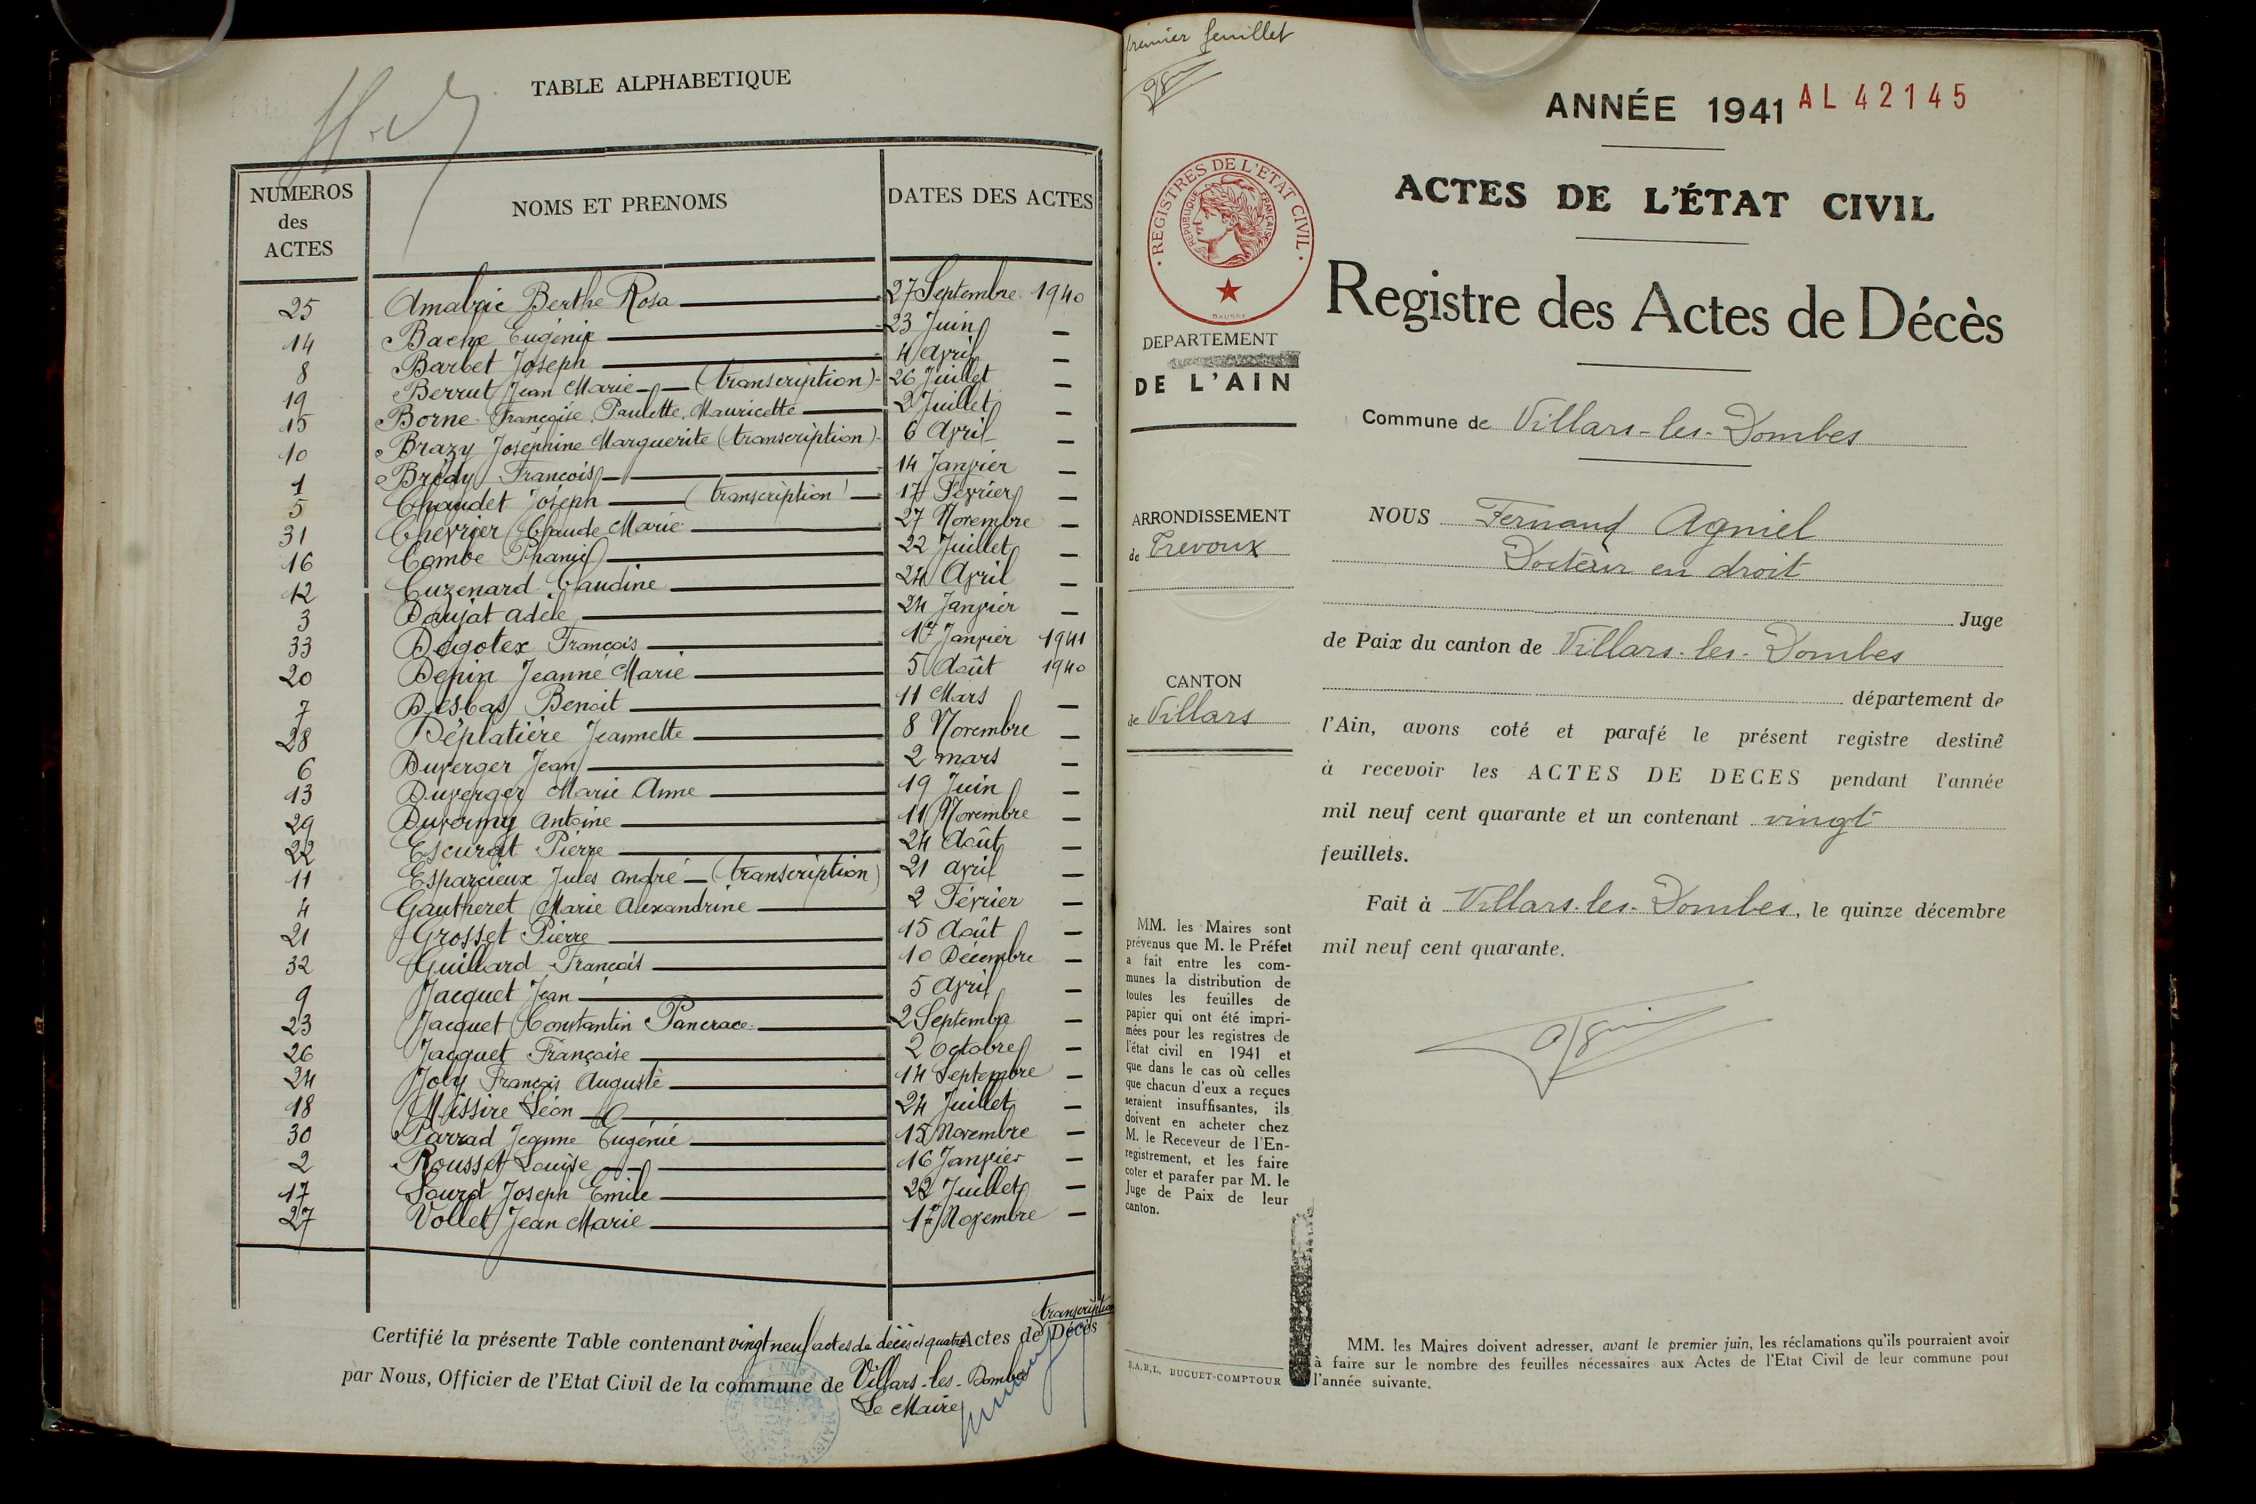 TABLE ALPHABETIQUE
NUMEROS des ACTES NOMS ET PRENOMS DATES DES ACTES
25 Amalric Berthe Rosa 27 Septembre 1940
14 Bache Eugénie 23 Juin —
8 Barbet Joseph 4 Avril —
19 Berrut Jean Marie — (transcription) 26 Juillet —
15 Borne Françoise Paulette Mauricette 2 Juillet —
10 Brazy Joséphine Marguerite (transcription) 6 Avril —
1 Brédy François 14 Janvier —
5 Chaudet Joseph (transcription) 17 Février —
31 Chevrier Claude Marie 27 Novembre —
16 Combe 22 Juillet —
12 Cuzenard Claudine 24 Avril —
3 Daujat Adèle 24 Janvier —
33 Degotex François 17 Janvier 1941
20 Depin Jeanne Marie 5 Août 1940
7 Desbas Benoit 11 Mars —
28 Déplatière Jeannette 8 Novembre —
6 Duverger Jean 2 mars —
13 Duverger Marie Anne 19 Juin —
29 Duvormy Antoine 11 Novembre —
22 Escurat Pierre 24 Août —
11 Esparcieux Jules André — (transcription) 21 avril —
4 Gautheret Marie Alexandrine 2 Février —
21 Grosset Pierre 15 Août —
32 Guillard François 10 Décembre —
9 Jacquet Jean 5 Avril —
23 Jacquet Constantin Pancrace 2 Septembre —
26 Jacquet Françoise 2 Octobre —
24 Joly François Auguste 14 Septembre —
18 Missire Léon 24 Juillet —
30 Parrad Jeanne Eugénie 15 Novembre —
2 Rousset Louise 16 Janvier —
17 Sourd Joseph Emile 22 Juillet —
27 Vollet Jean Marie 17 Novembre —
transcription
Certifié la présente Table contenant vingt neuf actes de décès et quatre Actes de Décès
par Nous, Officier de l'Etat Civil de la commune de Villars-les-Dombes
Le Maire
premier feuillet
ANNÉE 1941 AL 42145
ACTES DE L'ÉTAT CIVIL
Registre des Actes de Décès
· REGISTRES DE L'ETAT CIVIL ·
REPUBLIQUE FRANÇAISE
DEPARTEMENT
DE L'AIN
Commune de Villars-les-Dombes
ARRONDISSEMENT
de Trevoux
CANTON
de Villars
NOUS Fernand Agniel
Docteur en droit
Juge
de Paix du canton de Villars-les-Dombes
département de
l'Ain, avons coté et parafé le présent registre destiné
à recevoir les ACTES DE DECES pendant l'année
mil neuf cent quarante et un contenant vingt
feuillets.
Fait à Villars-les-Dombes, le quinze décembre
mil neuf cent quarante.
MM. les Maires sont
prévenus que M. le Préfet
a fait entre les com-
munes la distribution de
toutes les feuilles de
papier qui ont été impri-
mées pour les registres de
l'état civil en 1941 et
que dans le cas où celles
que chacun d'eux a reçues
seraient insuffisantes, ils
doivent en acheter chez
M. le Receveur de l'En-
registrement, et les faire
coter et parafer par M. le
Juge de Paix de leur
canton.
S.A.R.L. BUGUET-COMPTOUR
MM. les Maires doivent adresser, avant le premier juin, les réclamations qu'ils pourraient avoir
à faire sur le nombre des feuilles nécessaires aux Actes de l'Etat Civil de leur commune pour
l'année suivante.